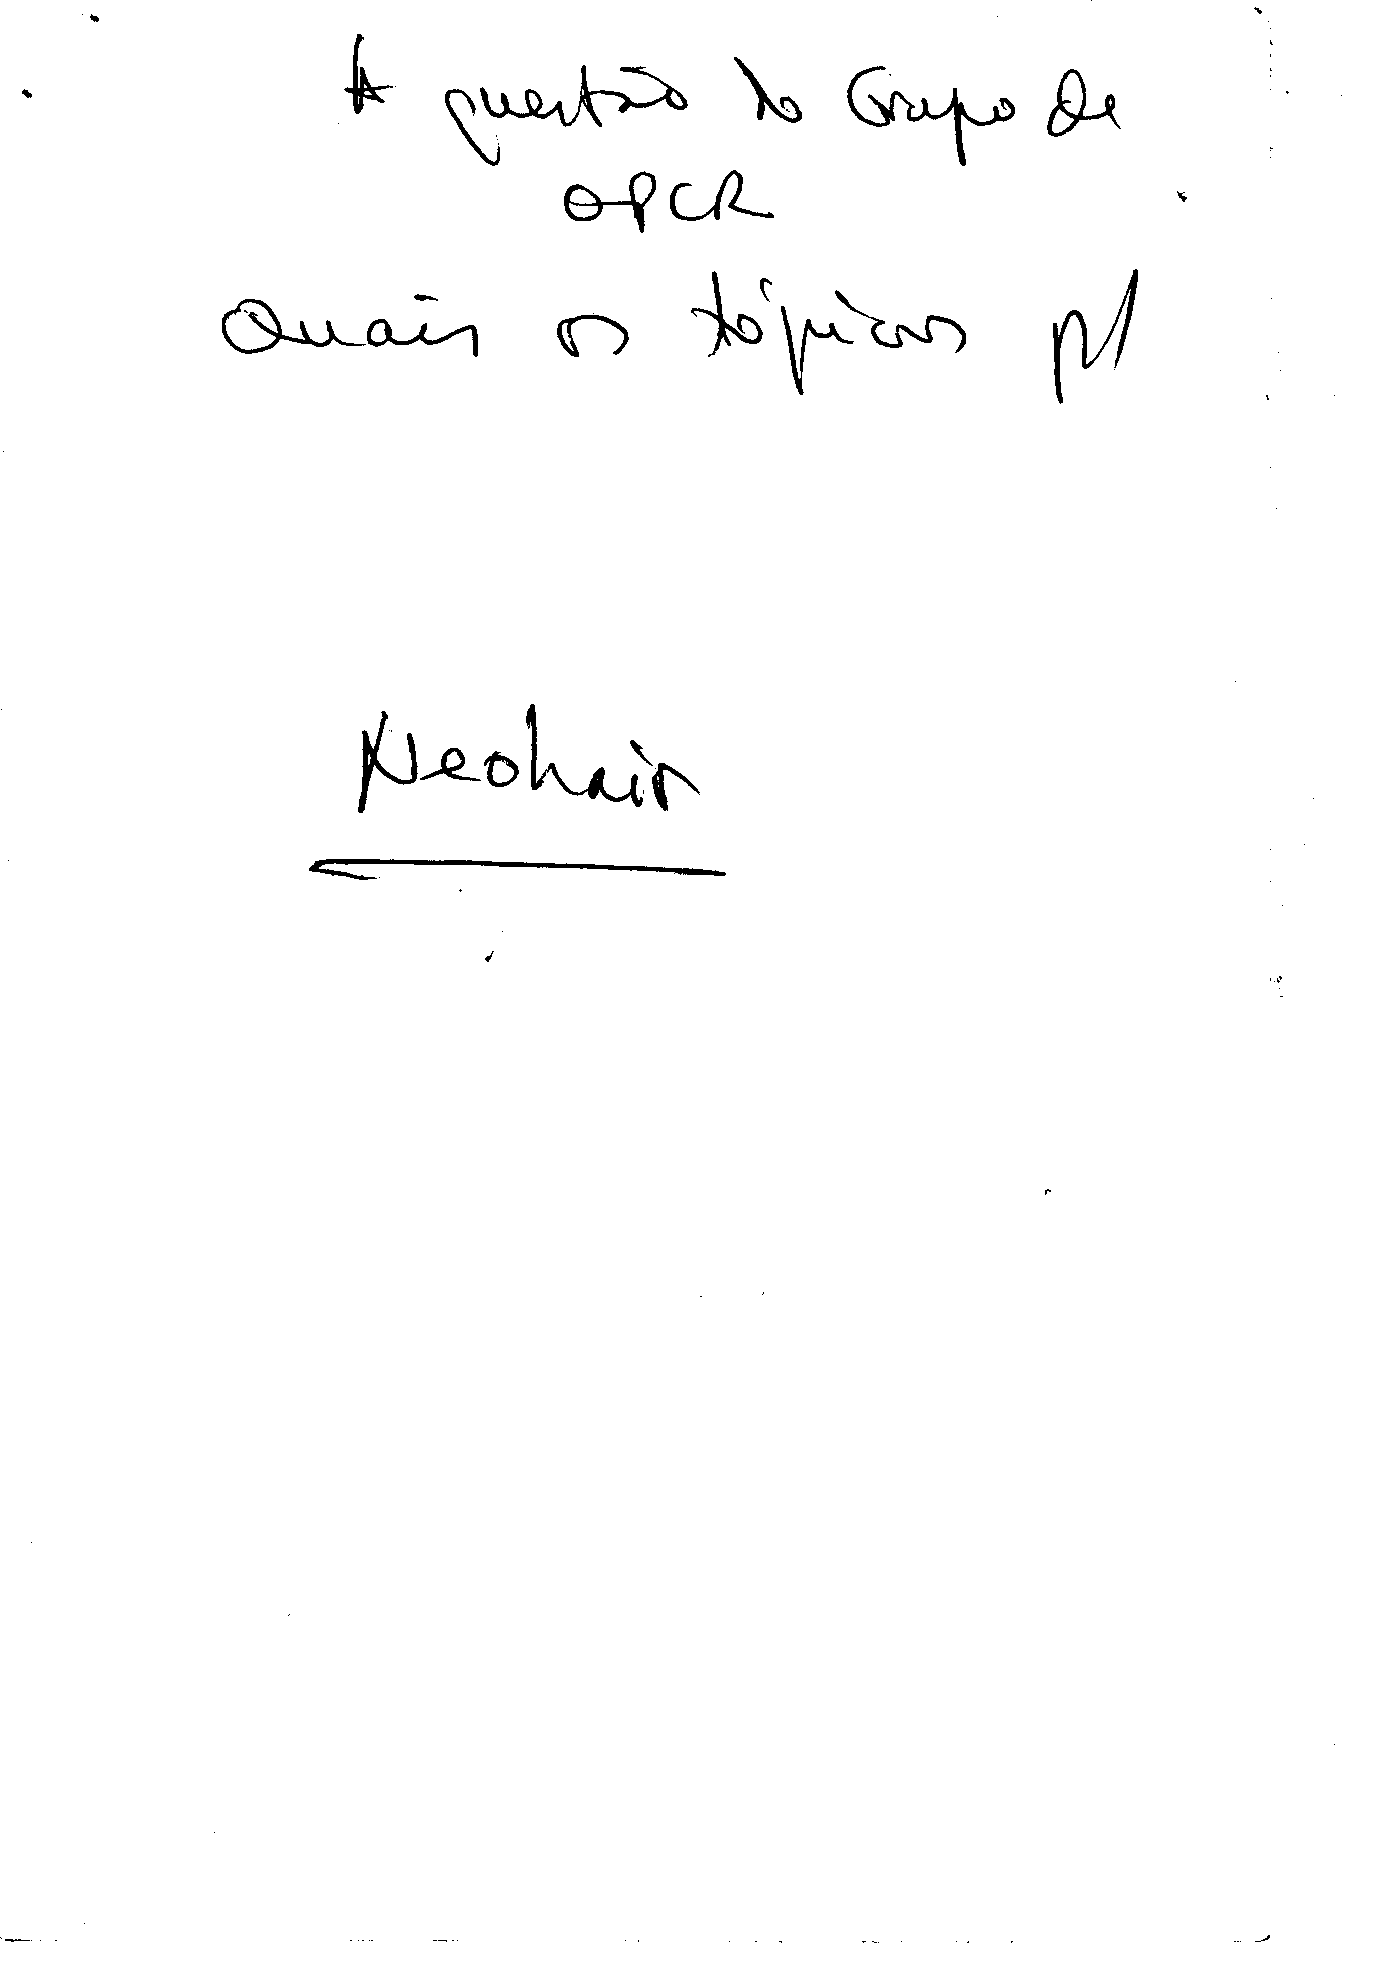 A questão do Grupo de
OPCR
Quais os tópicos p/
Neohair